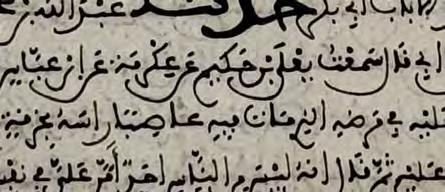 باب ابي بكر حدثنا عبد الله بن
ابي قال سمعت يعلى بن حكيم عن عكرمة عن ابن عباس
عليه في مرضه الذي مات فيه عاصبا راسه بخرقة
عليه ثم قال انه ليس من الناس احد امن علي في